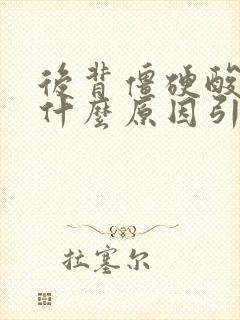 後背僵硬酸
什麼原因引
拉塞尔